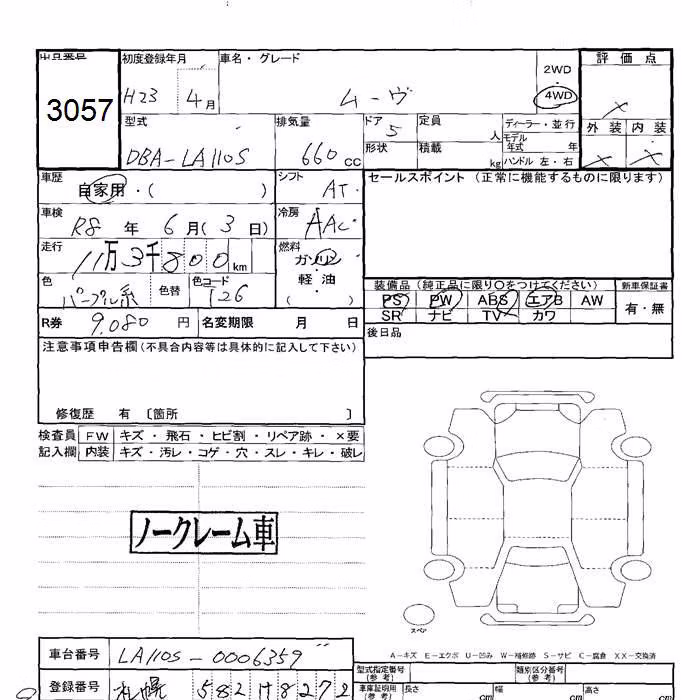 出品番号
3057
初度登録年月
H23 4月
車名・グレード
ムーヴ
2WD
4WD
評価点
×
外装 内装
× ×
型式
DBA-LA110S
排気量
660cc
ドア 5
定員 人
形状
積載 kg
ディーラー・並行
モデル年式 年
ハンドル 左・右
車歴
自家用・( )
シフト AT
車検
R8年 6月(3日)
冷房 AAC
走行
11万3千800km
燃料
ガソリン
軽・油
( )
色
パープル系
色替
色コード
T26
R券 9,080円
名変期限 月 日
セールスポイント(正常に機能するものに限ります)
装備品(純正品に限り○をつけてください)
新車保証書
PS PW ABS エアB AW
SR ナビ TV カワ
有・無
後日品
注意事項申告欄(不具合内容等は具体的に記入して下さい)
修復歴 有 〔箇所 〕
検査員記入欄
FW キズ・飛石・ヒビ割・リペア跡・×要
内装 キズ・汚レ・コゲ・穴・スレ・キレ・破レ
ノークレーム車
スペア
A-キズ E-エクボ U-凹み W-補修跡 S-サビ C-腐食 XX-交換済
車台番号 LA110S-0006359
登録番号 札幌 582 け 8272
型式指定番号(参考)
類別区分番号(参考)
車庫証明用(参考) 長さ cm 幅 cm 高さ cm